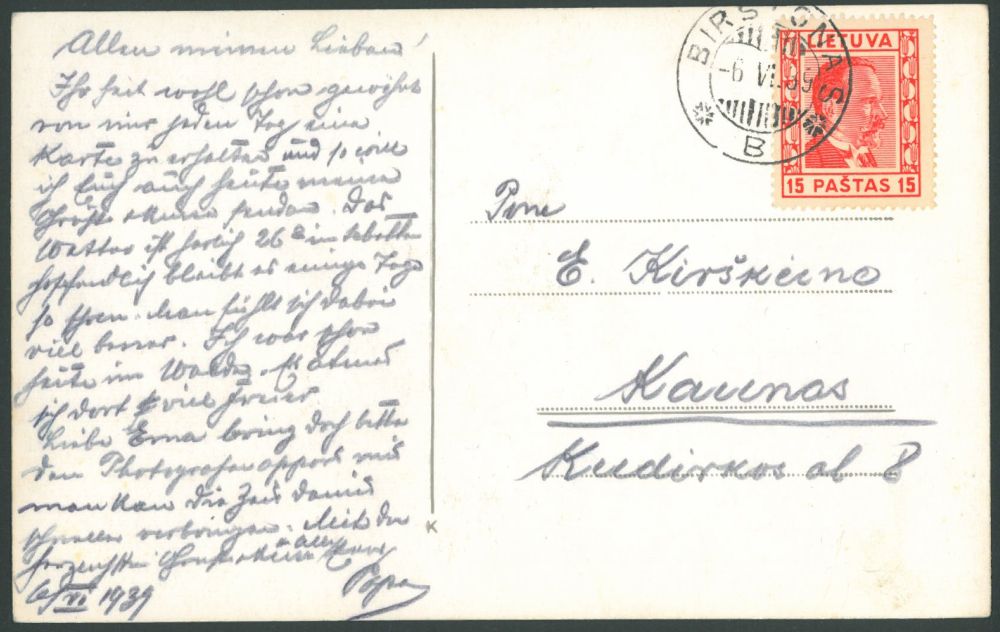 Allen meinen Lieben!
Ihr seit wohl schon gewöhnt
von mir jeden Tag eine
Karte zu erhalten und so will
ich Euch auch heute meine
senden. Das
Wetter ist herlich 26° im
hoffendlich bleibt es einige Tage
so schön. Man fühlt sich dabei
viel besser. Ich war schon
heute im Walde. Es atmet
sich dort viel freier
Liebe Erna bring doch bitte
den Photografenapparat mit
man kan die Zeit damit
schneller verbringen. Mit den
herzlichsten
Papa
6/VI 1939
BIRŠTONAS
-6 VI.39
B
LIETUVA
15 PAŠTAS 15
Pone
E. Kirškiene
Kaunas
Kudirkos al 8
K